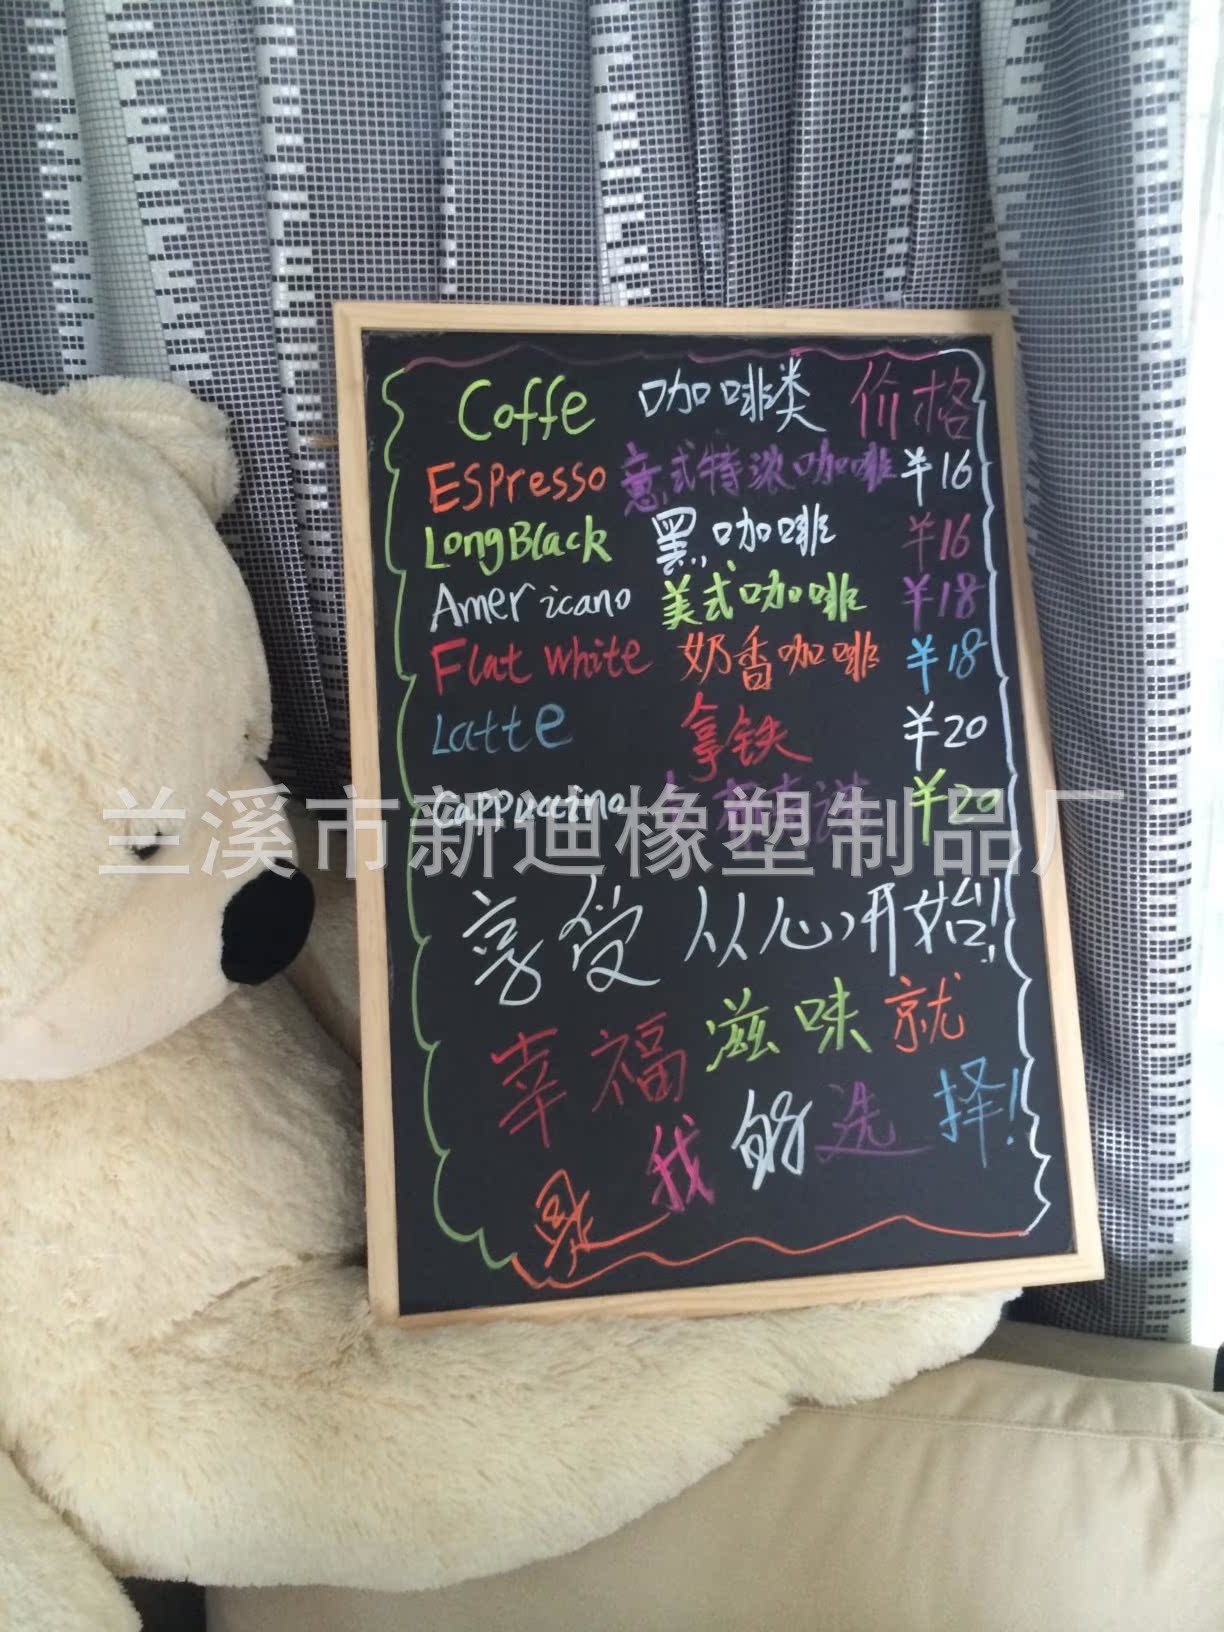 Coffe 咖啡类 价格
ESPresso 意式特浓咖啡 ¥16
LongBlack 黑咖啡 ¥16
Americano 美式咖啡 ¥18
Flat white 奶香咖啡 ¥18
Latte 拿铁 ¥20
Cappuccino ¥20
兰溪市新迪橡塑制品厂
享受从心开始!
幸福滋味就
是我的选择!